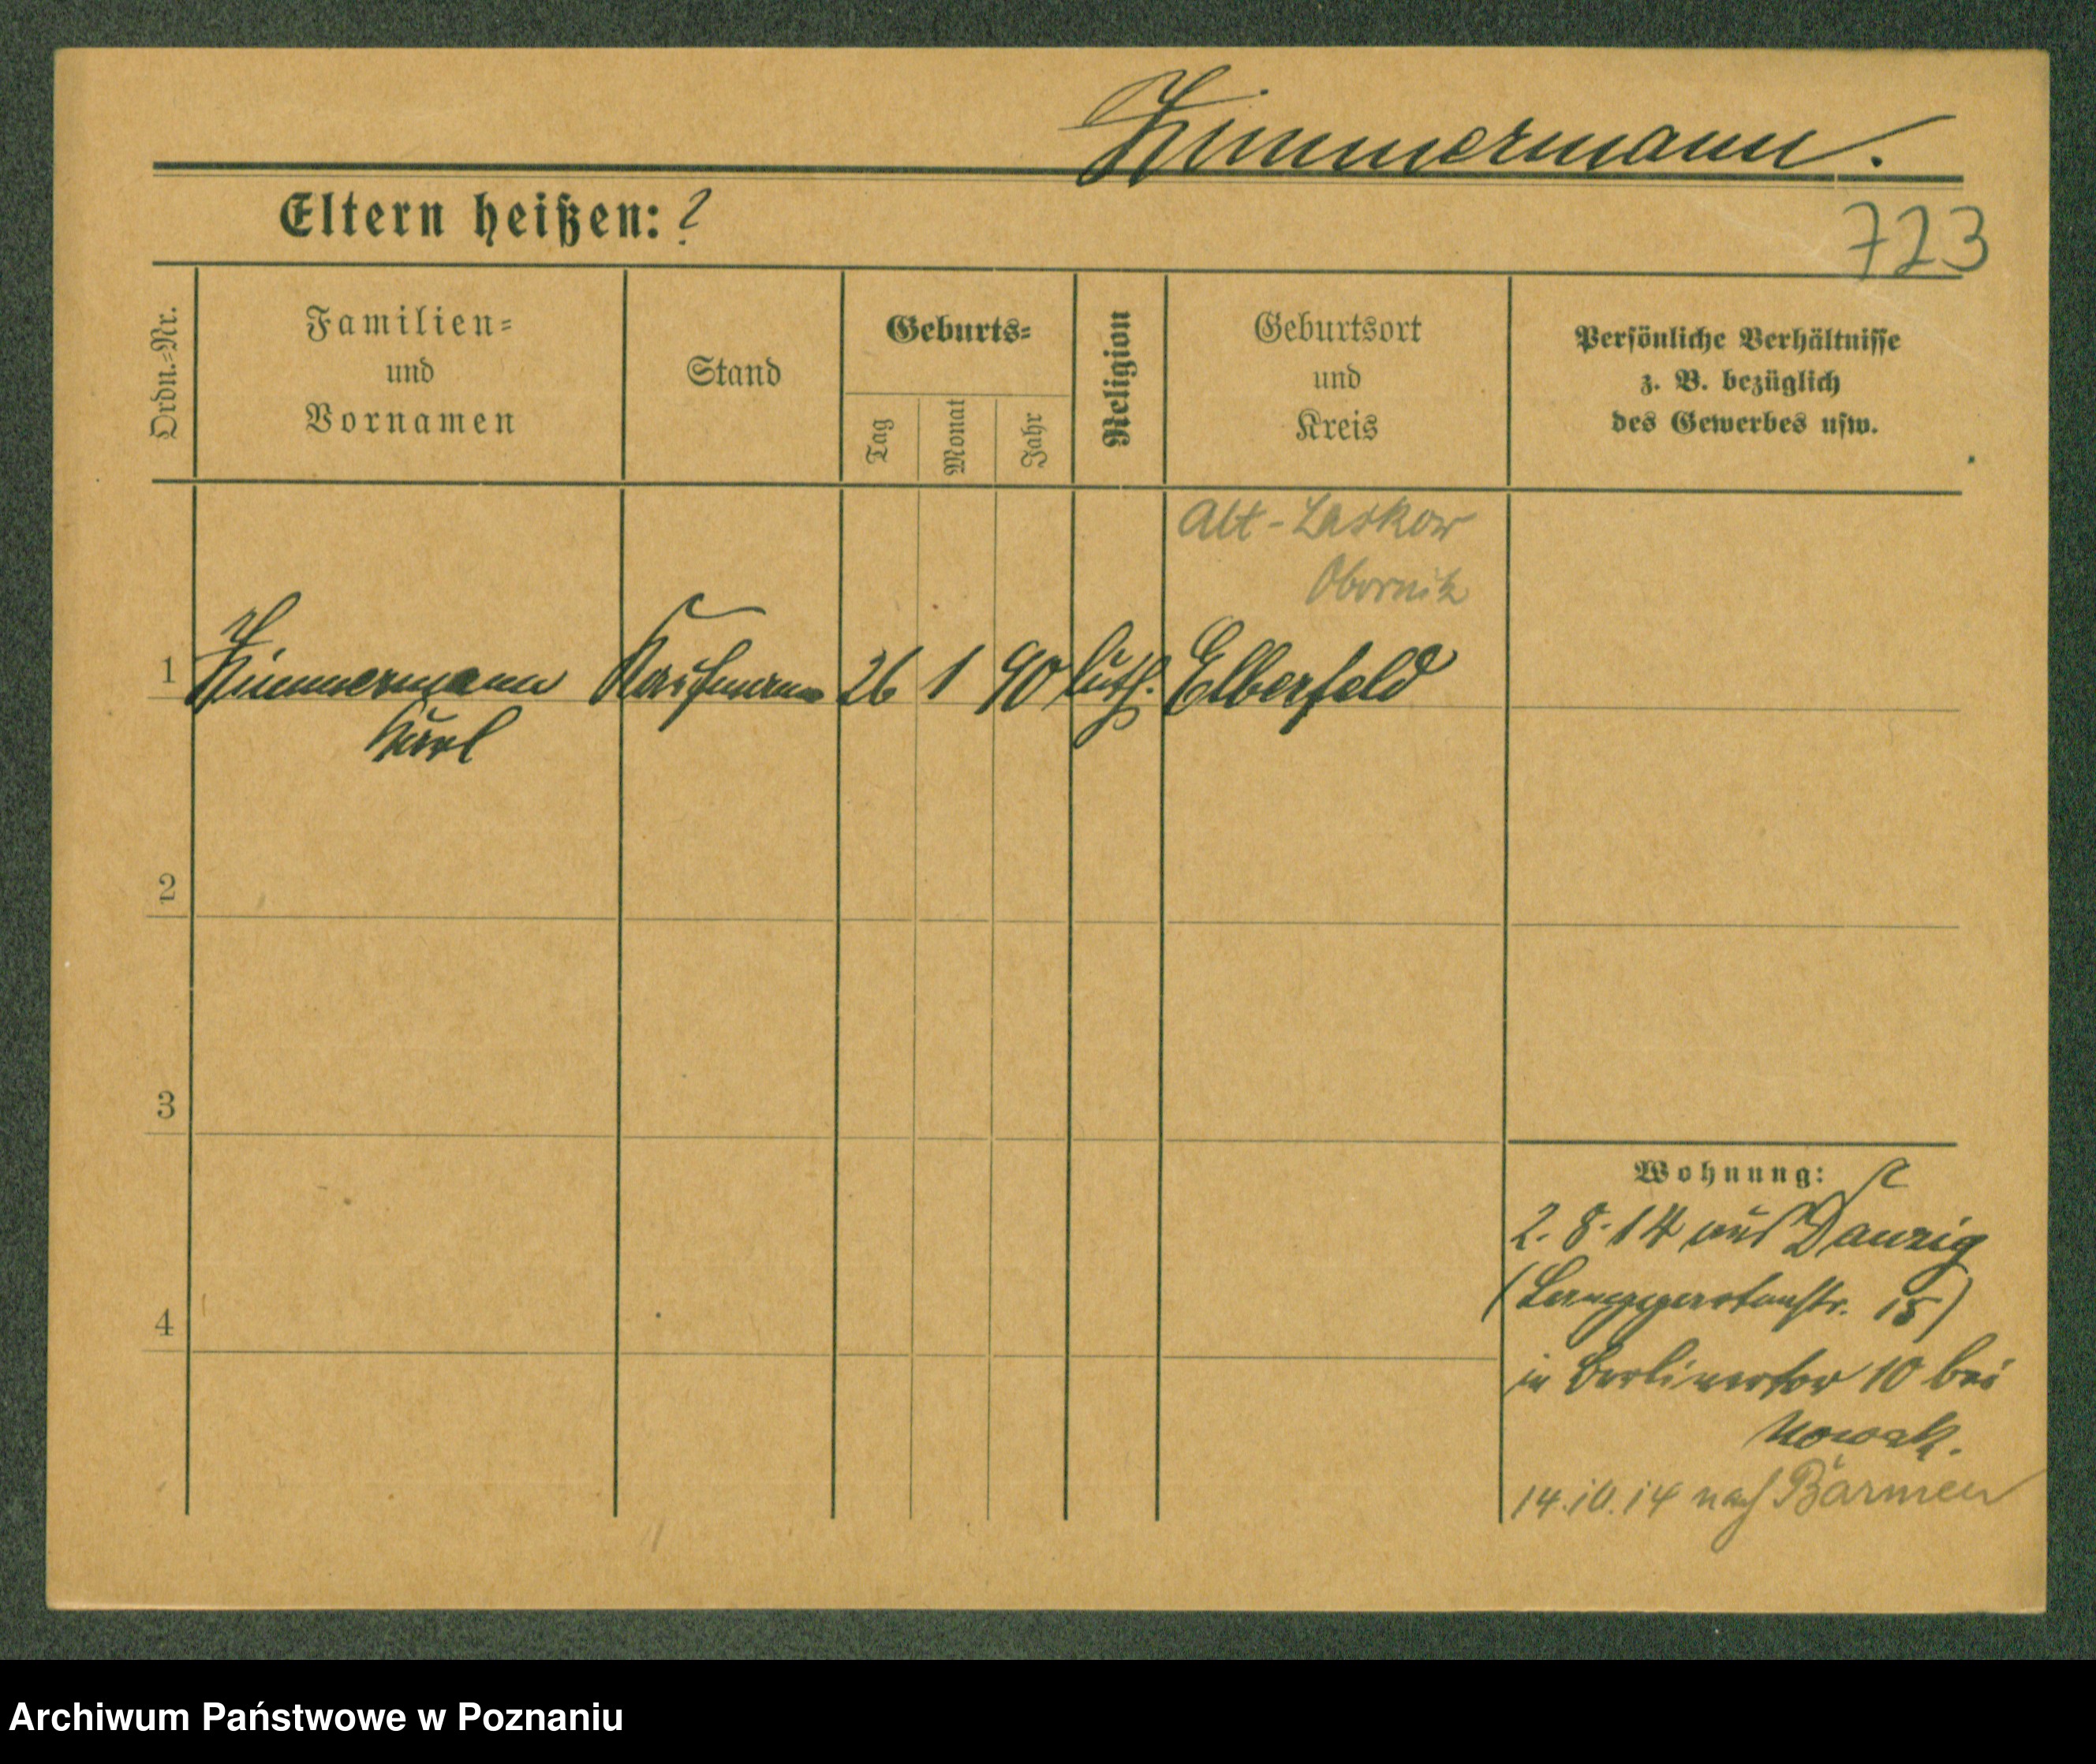 Zimmermann.
Eltern heißen: ?
723
Ordn.=Nr.
Familien=
und
Vornamen
Stand
Geburts=
Tag
Monat
Jahr
Religion
Geburtsort
und
Kreis
Persönliche Verhältnisse
z. B. bezüglich
des Gewerbes usw.
Alt-Laskow
Obornik
1 Zimmermann Kaufmann 26 1 90 luth. Elberfeld
Karl
2
3
4
Wohnung:
2.8.14 aus Danzig
(Langgartenstr. 15)
in Berlinertor 10 bei
Nowak.
14.10.14 nach Barmen
Archiwum Państwowe w Poznaniu